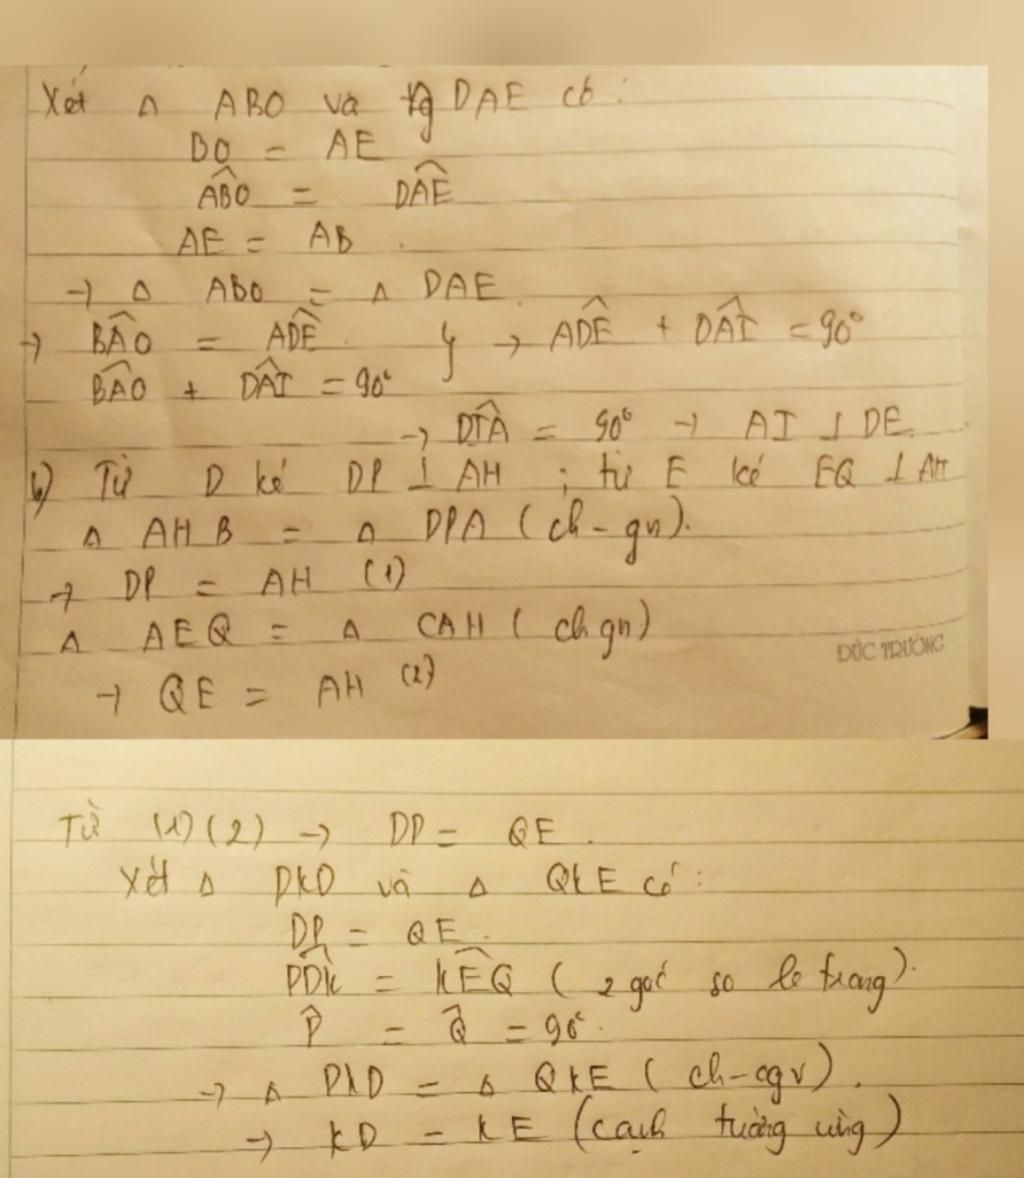 Xét Δ ABO và tg DAE có:
BO = AE
ABO^ = DAE^
AE = AB.
→ Δ ABO = Δ DAE.
→ BAO^ = ADE^ } → ADE^ + DAI^ = 90°
BAO^ + DAI^ = 90°
→ DIA^ = 90° → AI ⊥ DE.
b) Từ D kẻ DP ⊥ AH ; từ E kẻ EQ ⊥ AH
Δ AHB = Δ DPA (ch-gn).
→ DP = AH (1)
Δ AEQ = Δ CAH (ch gn)
→ QE = AH (2)
ĐỨC TRƯỜNG
Từ (1) (2) → DP = QE.
Xét Δ PKD và Δ QKE có:
DP = QE.
PDK^ = KEQ^ (2 góc so le trong).
P^ = Q^ = 90°.
→ Δ PKD = Δ QKE (ch-cgv).
→ KD = KE (cạnh tường ứng)